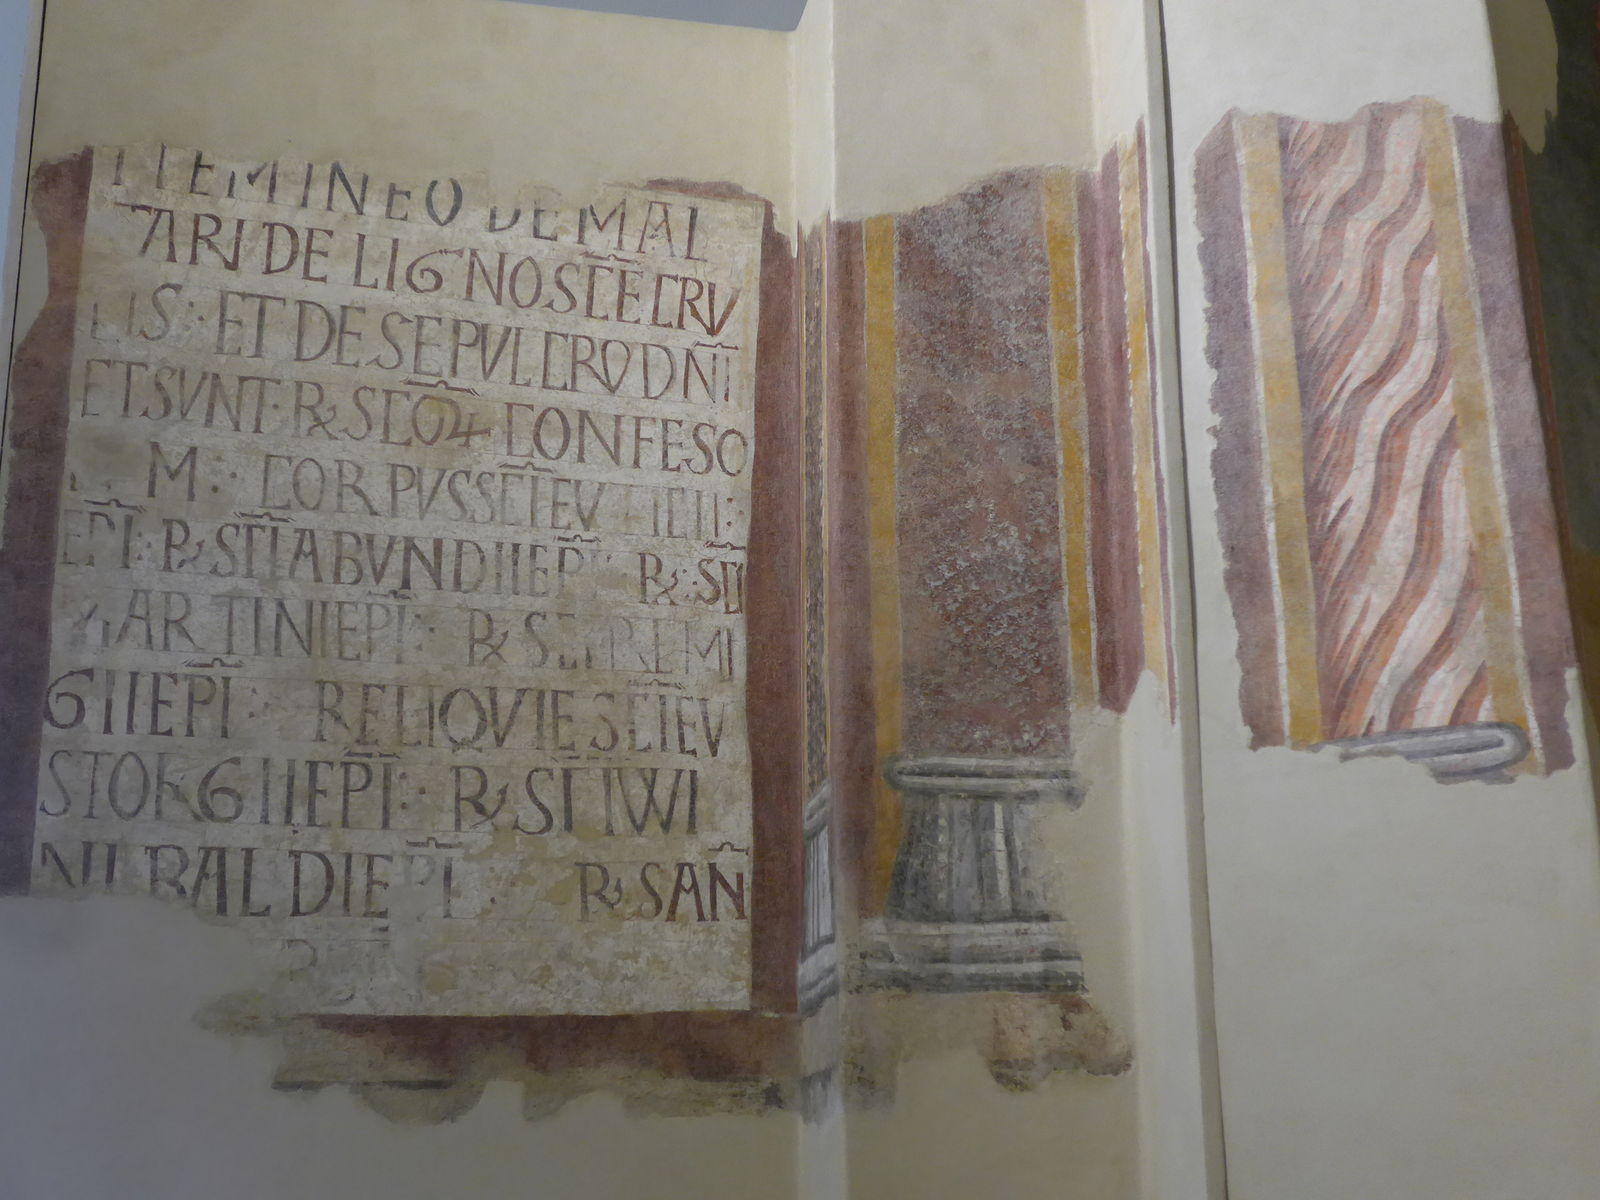 ITEM IN EO DEM AL
TARI DE LIGNO SCE CRV
CIS : ET DE SEPVLCRO DNI
ET SVNT R SCOR CONFESO
M : CORPVS SCI EV
EPI : R SCI ABVNDII EPI R : SCI
MARTINI EPI : R S REMI
GII EPI : RELIQVIE SCI EV
STORGII EPI : R SCI WI
NIBALDI EPI : R SAN